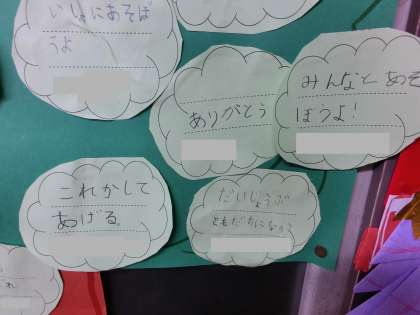 いっしょにあそぼ
うよ
ありがとう
みんなとあそ
ぼうよ!
これかして
あげる。
だいじょうぶ
ともだちになろう
れ